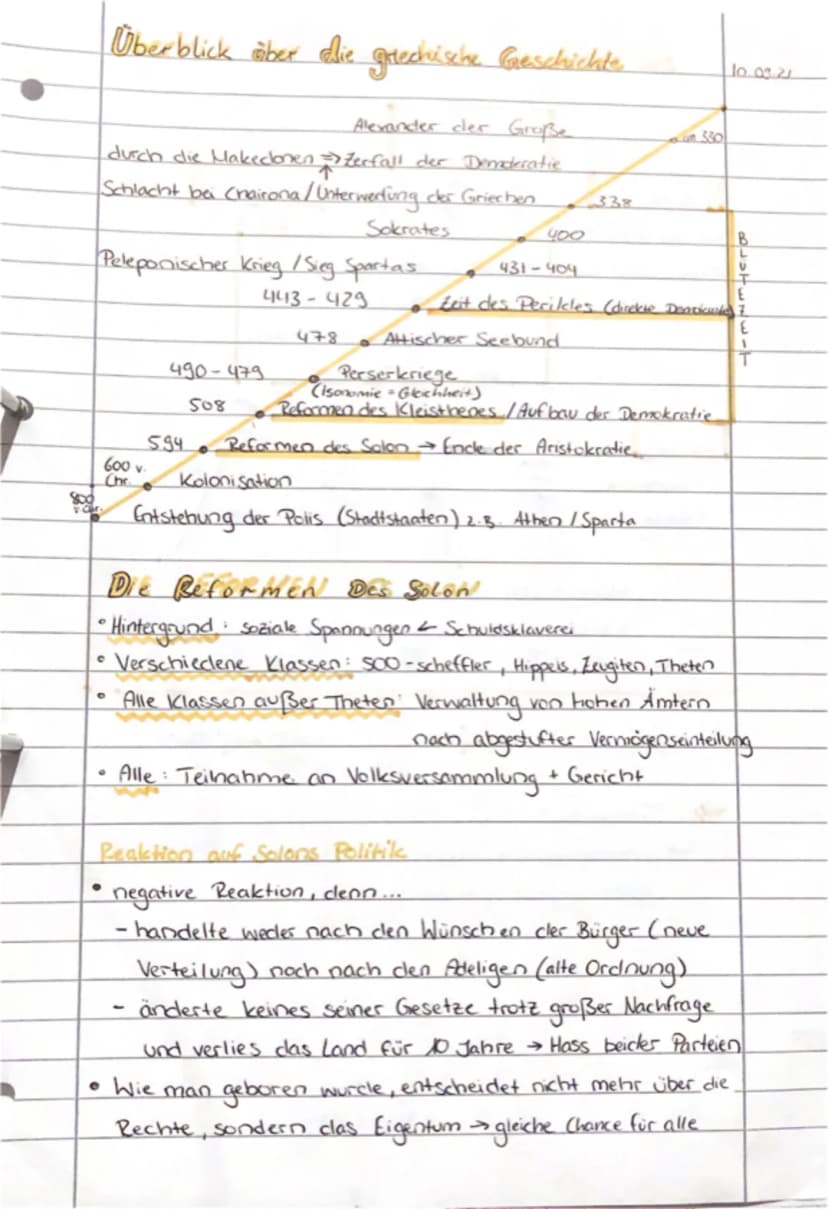 Überblick über die griechische Geschichte
10.09.21
Alexander der Große
um 330
durch die Makedonen ⇒ Zerfall der Demokratie
↑
Schlacht bei Chairona / Unterwerfung der Griechen 338
Sokrates 400
Peleponischer Krieg / Sieg Spartas 431-404
443-429 Zeit des Perikles (direkte Demokratie)
478 Attischer Seebund
490-479 Perserkriege
(Isonomie = Gleichheit)
508 Reformen des Kleisthenes / Aufbau der Demokratie
594 Reformen des Solon → Ende der Aristokratie
600 v.
Chr. Kolonisation
800
v. Chr.
Entstehung der Polis (Stadtstaaten) z.B. Athen / Sparta
BLÜTEZEIT
Die Reformen des Solon
• Hintergrund: soziale Spannungen ← Schuldsklaverei
• Verschiedene Klassen: 500-scheffler, Hippeis, Zeugiten, Theten
• Alle Klassen außer Theten: Verwaltung von hohen Ämtern
nach abgestufter Vermögenseinteilung
• Alle: Teilnahme an Volksversammlung + Gericht
Reaktion auf Solons Politik
• negative Reaktion, denn...
- handelte weder nach den Wünschen der Bürger (neue
Verteilung) noch nach den Adeligen (alte Ordnung)
- änderte keines seiner Gesetze trotz großer Nachfrage
und verlies das Land für 10 Jahre → Hass beider Parteien
• Wie man geboren wurde, entscheidet nicht mehr über die
Rechte, sondern das Eigentum → gleiche Chance für alle